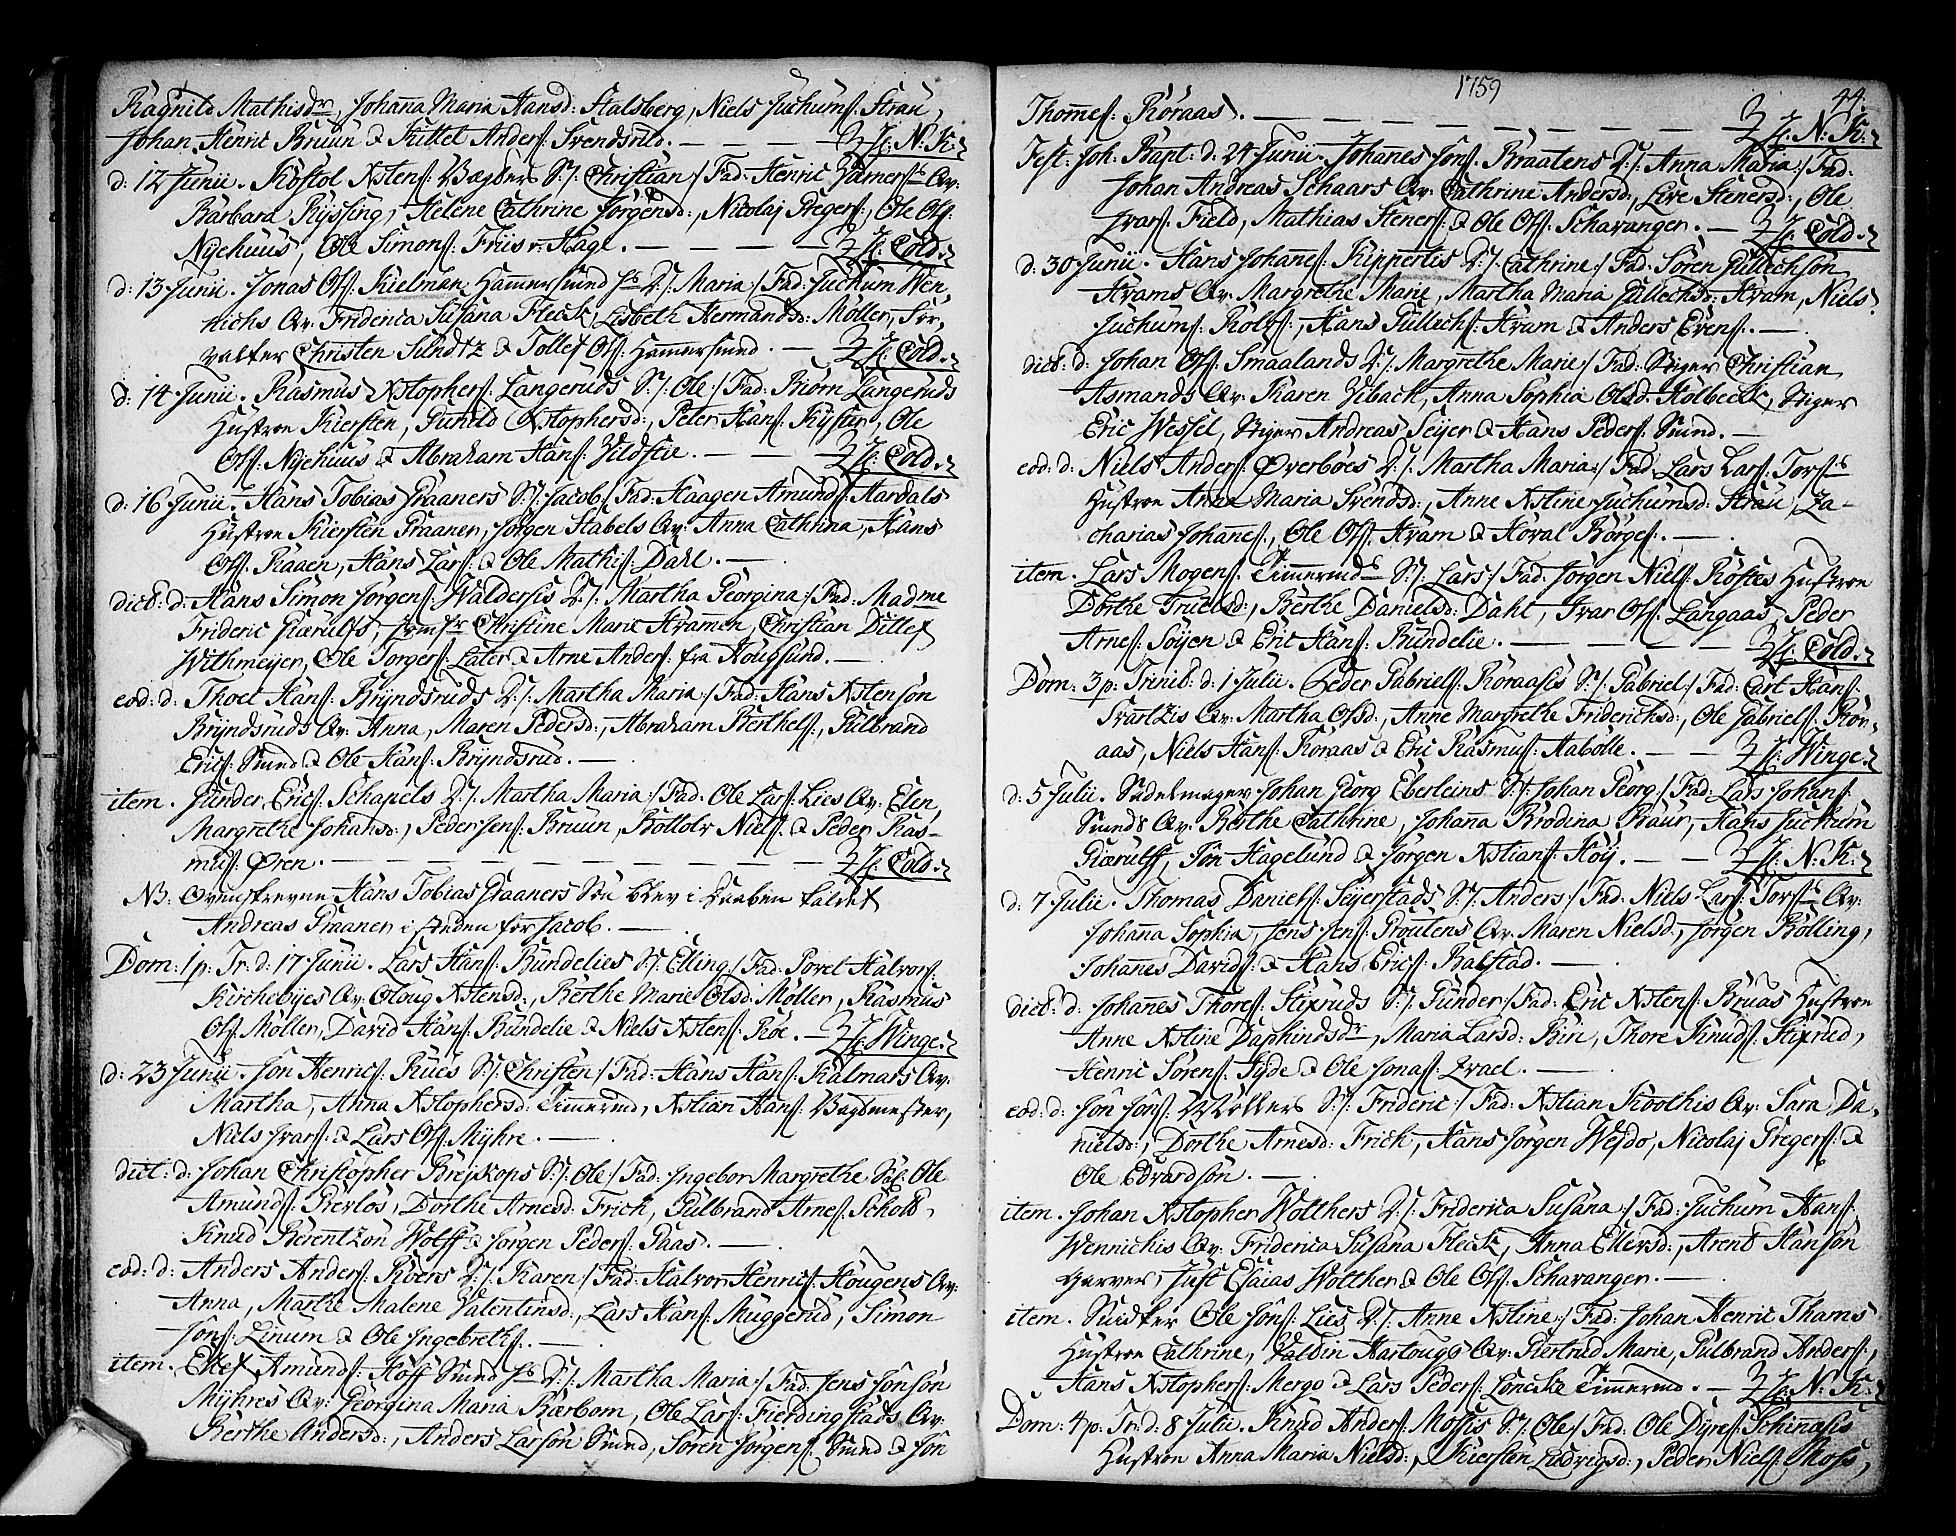 Ragnild Mathisdr, Johanna Maria Hansd: Stalsberg, Niels Juchumſ: Strau,
Johan Henric Bruun & Kittel Anderſ: Svendsrud. — — — — N: K:
d: 12 Junii. Kostol Xstenſ: Bægbers S:/: Christian:/ Fad: Henric Hamerſs Qv:
Barbara Ryssing, Helene Cathrine Jørgensd:, Nicolaj Gregerſ:, Ole Olſ:
Nyehuus, Ole Simonſ: Friis v. Hage. — — — — Cold.
d: 13 Junii. Jonas Olſ: Kielman Hammersmed hs D:/: Maria:/ Fad: Juchum Wen-
nichs Qv: Friderica Susana Fleck, Lisbeth Hermandsd: Møller, For-
valter Christen Sundtz & Tollef Olſ: Hammersmed. — Cold.
d: 14 Junii. Rasmus Xstopherſ: Langeruds S:/: Ole:/ Fad: Biørn Langeruds
Hustroe Kiersten, Gunild Xstophersd:, Peter Hanſ: Kyster, Ole
Olſ: Nyehuus & Abraham Hanſ: Vildstie. — — — Cold.
d: 16 Junii. Hans Tobias Graaners S:/: Jacob:/ Fad: Haagen Amundſ: Hardals
Hustroe Kiersten Graaner, Jørgen Stabels Qv: Anna Cathrina, Hans
Olſ: Raaen, Hans Larſ: & Ole Mathiſ: Dahl. —
dict: d: Hans Simon Jørgenſ: Waldersis D:/: Martha Georgina:/ Fad: Madme
Frideric Giærulfs, Jomfr Christine Marie Kramer, Christian Ditlef
Withmeijer, Ole Torgerſ: Later & Arne Anderſ: fra Hougsund. —
eod: d: Thoel Hanſ: Bryndsruds D:/: Martha Maria:/ Fad: Hans Xstensøn
Bryndsruds Qv: Anna, Maren Pedersd:, Abraham Berthelſ:, Gulbrand
Ericſ: Smed & Ole Hanſ: Bryndsrud. —
item. Gunder Ericſ: Schapels D:/: Martha Maria:/ Fad: Ole Larſ: Lies Qv: Elen,
Margrethe Johansd:, Peder Jenſ: Bruun, Kollolv Nielſ: & Peder Ras-
muſ: Øren. — — — — — — — — Cold.
NB: Ovenskrevne Hans Tobias Graaners Søn blev i Daaben kaldet
Andreas Graaner i steden for Jacob. —
Dom: 1 p: Tr: d: 17 Junii. Lars Hanſ: Bundelies S:/: Elling:/ Fad: Goret Halvorſ:
Kirchebyes Qv: Oloug Xstensd:, Berthe Marie Olsd: Møller, Rasmus
Olſ: Møller, David Hanſ: Bundelie & Niels Xstenſ: Røe. — Winge.
d: 23 Junii. Jon Henricſ: Rues S:/: Christen:/ Fad: Hans Hanſ: Kalmars Qv:
Martha, Anna Xstophersd: Timermd, Xstian Hanſ: Bagtmester,
Niels Ivarſ: & Lars Olſ: Myhre. —
dict: d: Johan Christopher Brejskops S:/: Ole:/ Fad: Ingebor Margrethe Sal: Ole
Amundſ: Grevløs, Dorthe Arnesd: Frich, Gulbrand Arneſ: Schott,
Knud Berentzøn Wolff & Jørgen Pederſ: Gaas. —
eod: d: Anders Anderſ: Roers D:/: Karen:/ Fad: Halvor Henricſ: Hougens Qv:
Anna, Marthe Malene Valentinsd:, Lars Hanſ: Muggerud, Simon
Jonſ: Linum & Ole Ingebrethſ:. —
item. Ellef Amundſ: Hoff Smed hs D:/: Martha Maria:/ Fad: Jens Jonsøn
Myhres Qv: Georgina Maria Barbom, Ole Larſ: Fierdingstads Qv:
Berthe Andersd:, Anders Larsøn Smed, Søren Jørgenſ: Smed & Jon
1759
44.
Thommeſ: Roraas. — — — — — — — — N: K:
Fest: Joh: Bapt: d: 24 Junii. Johannes Jonſ: Braatens D:/: Anna Maria:/ Fad:
Johan Andreas Schaars Qv: Cathrine Andersd:, Live Stenersd:, Ole
Ivarſ: Field, Mathias Stenerſ: & Ole Olſ: Schavanger. — Cold.
d: 30 Junii. Hans Johanneſ: Ruppertis D:/: Cathrine:/ Fad: Søren Gullechsøn
Krams Qv: Margrethe Marie, Martha Maria Gullechsd: Kram, Niels
Juchumſ: Rolv:, Hans Gullechſ: Kram & Anders Evenſ:. —
dict: d: Johan Olſ: Smaalands D:/: Margrethe Marie:/ Fad: Stiger Christian
Asmands Qv: Karen Zibach, Anna Sophia Olsd: Holbeck, Stiger
Eric Wessel, Stiger Andreas Seyer & Hans Pederſ: Smed. —
eod: d: Niels Anderſ: Øverbøes D:/: Martha Maria:/ Fad: Lars Larſ: Torſs
Hustroe Anna Maria Svendsd:, Anne Xstine Juchumsd: Strau, Za-
charias Johanneſ:, Ole Olſ: Kram & Horal Børgeſ:. —
item. Lars Mogenſ: Timermds S:/: Lars:/ Fad: Jørgen Nielſ: Røstes Hustroe
Dorthe Truelsd:, Berthe Danielsd: Dahl, Ivar Olſ: Langaas, Peder
Arneſ: Søyen & Eric Hanſ: Bundelie. — — — — Cold.
Dom: 3 p: Trinit: d: 1 Julii. Peder Gabrielſ: Roraasis S:/: Gabriel:/ Fad: Carl Hanſ:
Svartzis Qv: Martha Olsd:, Anne Margrethe Friderichsd:, Ole Gabrielſ: Ror-
aas, Niels Hanſ: Roraas & Eric Rasmuſ: Aabolle. — — Winge.
d: 5 Julii. Sadelmager Johan Georg Eberleins S:/: Johan Georg:/ Fad: Lars Johanſ:
Smeds Qv: Berthe Cathrine, Johanna Brodina Graur, Hans Juchum
Giærulff, Jon Hagelund & Jørgen Xstianſ: Høy. — — N: K:
d: 7 Julii. Thomas Danielſ: Seyerstads S:/: Anders:/ Fad: Niels Larſ: Torſs Qv:
Johana Sophia, Jens Jenſ: Proutens Qv: Maren Nielsd:, Jørgen Bølling,
Johannes Davidſ: & Hans Ericſ: Bakstad. —
dict: d: Johannes Thoreſ: Stixruds S:/: Gunder:/ Fad: Eric Xstenſ: Bruas Hustroe
Anne Xstine Daskindsdr, Maria Larsd: Biri, Thore Knudſ: Stixrud,
Henric Sørenſ: Gyde & Ole Jonaſ: Zrael. —
eod: d: Jon Jonſ: Wollers S:/: Frideric:/ Fad: Xstian Koothis Qv: Sara Da-
nielsd:, Dorthe Arnesd: Frich, Hans Jørgen Wejdo, Nicolaj Gregerſ: &
Ole Edvardsøn. —
item. Johan Xstopher Wolthers D:/: Friderica Susana:/ Fad: Juchum Hanſ:
Wennichis Qv: Friderica Susana Fleck, Anna Ellevsd:, Arent Hansøn
Garver, Just Esaias Wolther & Ole Olſ: Schavanger. —
item. Snidker Ole Jonſ: Lies D:/: Anne Xstine:/ Fad: Johan Henric Thams
Hustroe Cathrine, Valdin Hartougs Qv: Giertrud Marie, Gulbrand Anderſ:,
Hans Xstopherſ: Mergo & Lars Pederſ: Loncke Timermd. — N: K:
Dom: 4 p: Tr: d: 8 Julii. Knud Anderſ: Mossis S:/: Ole:/ Fad: Ole Dyreſ: Schinnasis
Hustroe Anna Maria Nielsd:, Kiersten Ludvigsd:, Peder Nielſ: Moss,